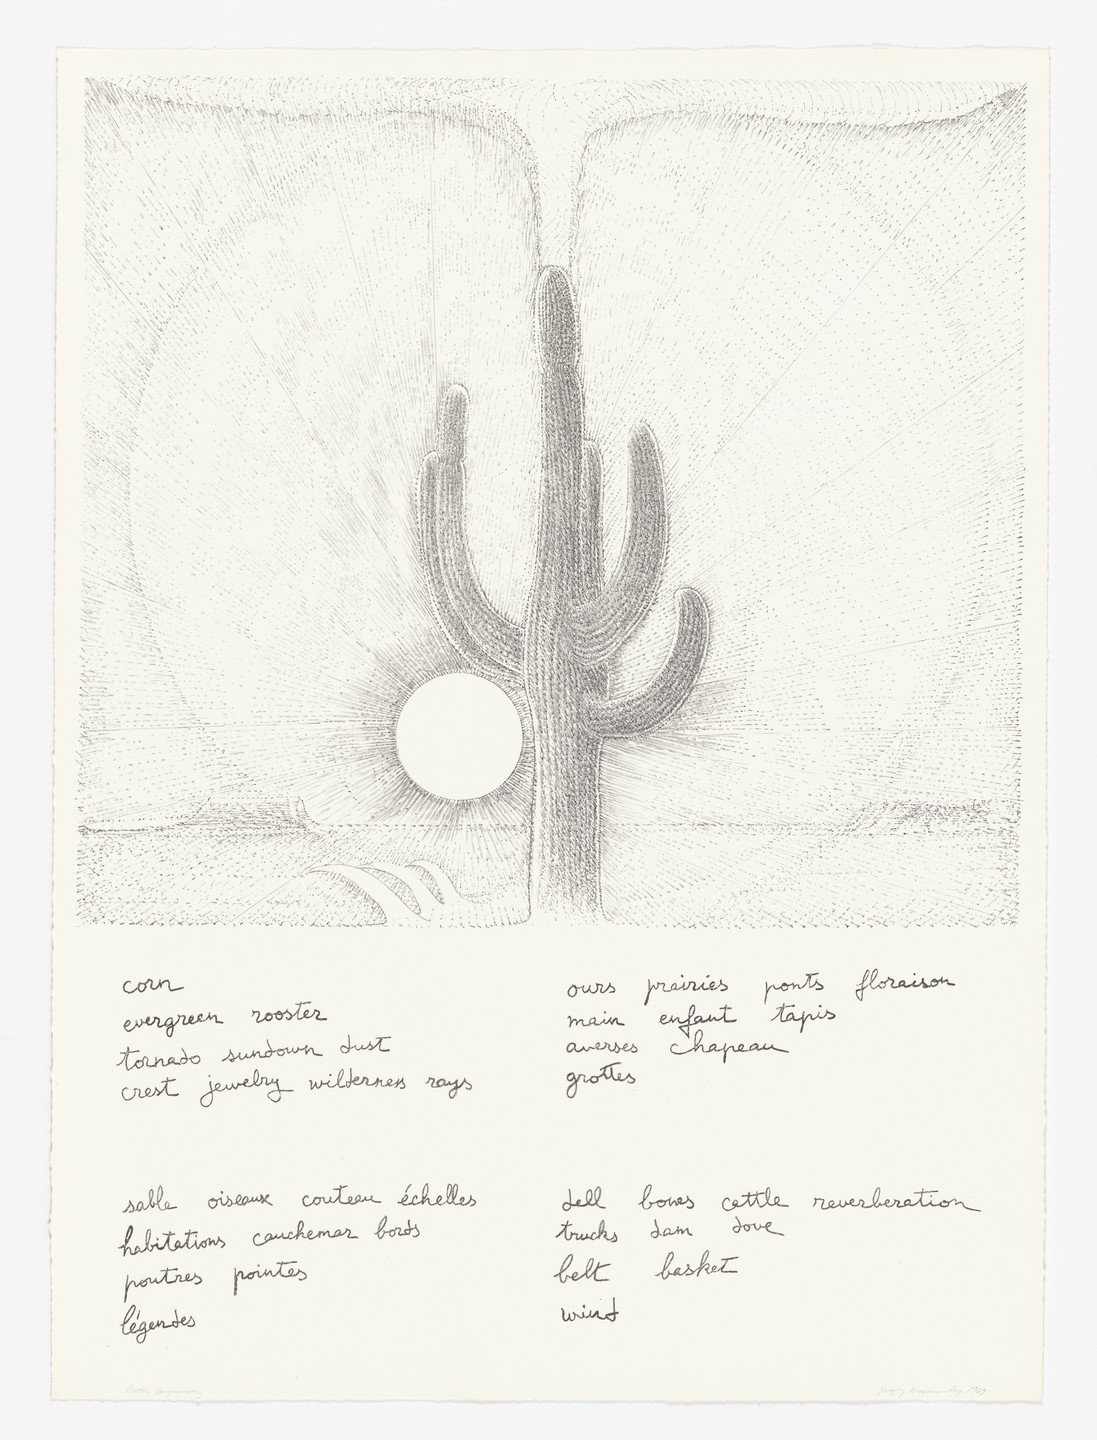 corn
evergreen rooster
tornado sundown dust
crest jewelry wilderness rays
ours prairies ponts floraison
main enfant tapis
averses chapeau
grottes
sable oiseaux couteau échelles
habitations cauchemar bords
poutres pointes
légendes
dell bones cattle reverberation
trucks dam dove
belt basket
wind
1969